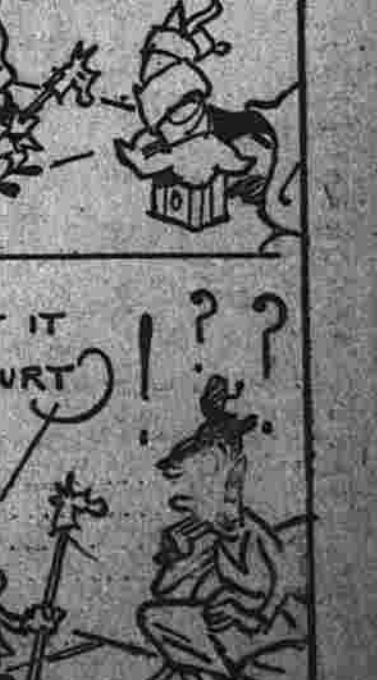 IT
URT
! ? ?